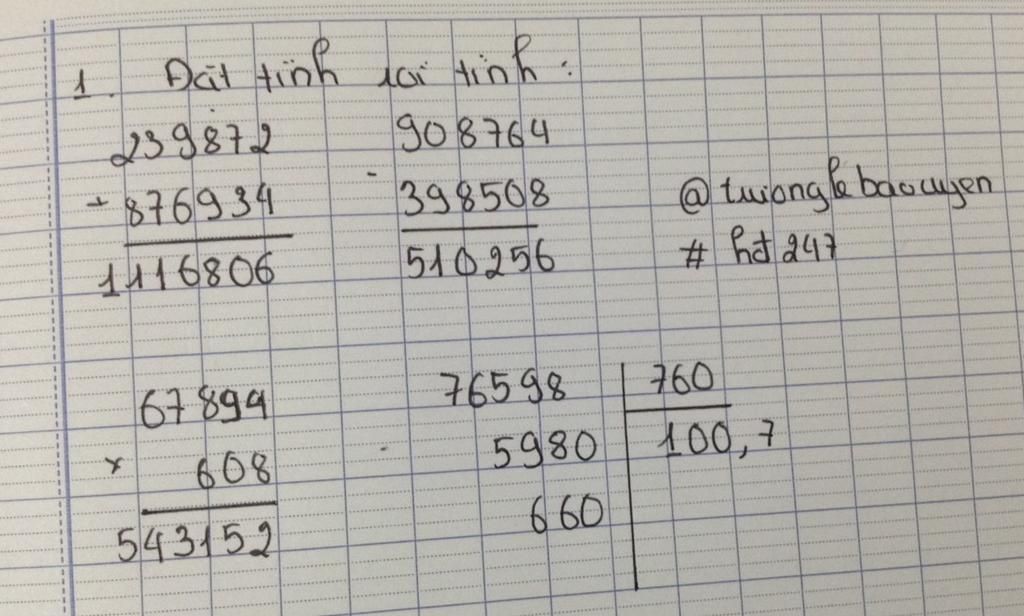 1. Đặt tính rồi tính:
239872
+ 876934
1116806
908764
- 398508
510256
@ truonglebaouyen
# hd 247
67894
× 608
543152
76598 | 760
5980 | 100,7
660